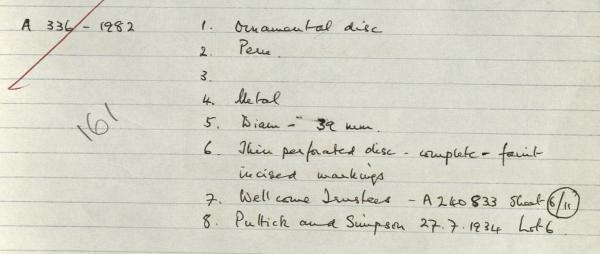 A 336 - 1982
1. Ornamental disc
2. Peru
3.
4. Metal
5. Diam - 39 mm.
161
6. Thin perforated disc - complete - faint
incised markings
7. Wellcome Trustees - A240833 Sheet 6/11
8. Puttick and Simpson 27.7.1934 Lot 6